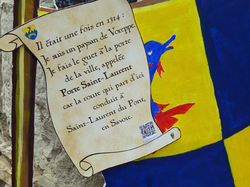 Il était une fois en 1314 :
Je suis un paysan de Voreppe
Je fais le guet à la porte
de la ville, appelée
Porte Saint-Laurent
car la route qui part d'ici
conduit à
Saint-Laurent du Pont,
en Savoie.